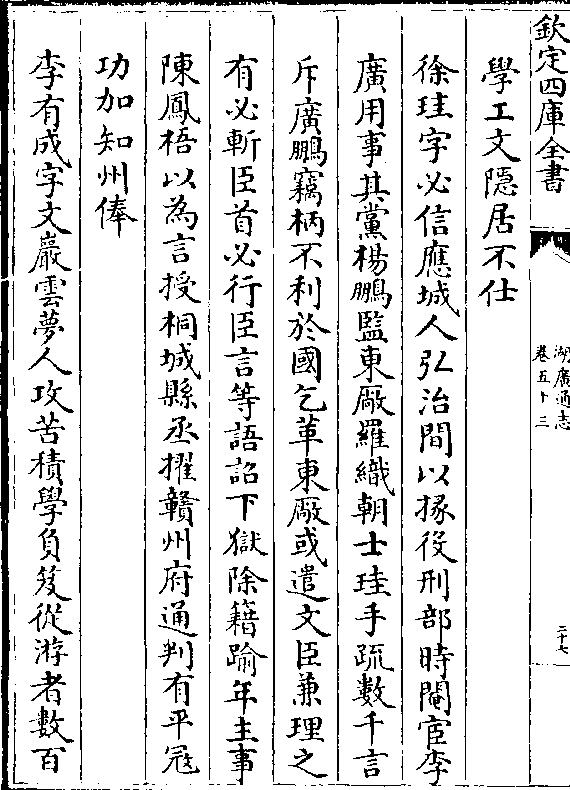 欽定四庫全書
湖廣通志
卷五十三
二十七
學工文隠居不仕
徐珪字必信應城人弘治間以掾役刑部時閹宦李
廣用事其黨楊鵬監東厰羅織朝士珪手疏數千言
斥廣鵬竊柄不利於國乞革東厰或遣文臣兼理之
有必斬臣首必行臣言等語詔下獄除籍踰年主事
陳鳳梧以為言授桐城縣丞擢贛州府通判有平冦
功加知州俸
李有成字文巖雲夢人攻苦積學負笈從游者數百